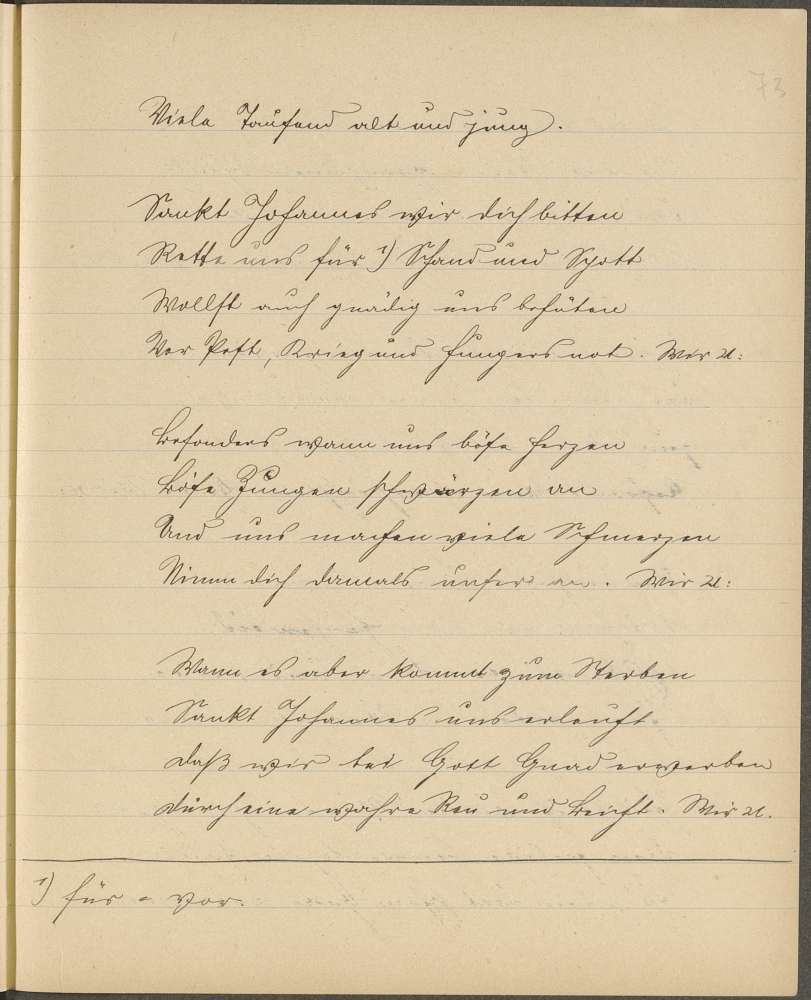 73
Viele Tausend alt und jung.
Sankt Johannes wir dich bitten
Rette uns für ¹) Schand und Spott
Wollst auch gnädig uns behüten
Vor Pest, Krieg und Hungersnot. Wir u:
Besonders wann uns böse Herzen
Böse Zungen schwärzen an
Und uns machen viele Schmerzen
Nimm dich damals unser an. Wir u:
Wann es aber kommt zum Sterben
Sankt Johannes uns erleucht
Daß wir bei Gott Gnad erwerben
Durch eine wahre Reu und Beicht. Wir u.
¹) für = vor.